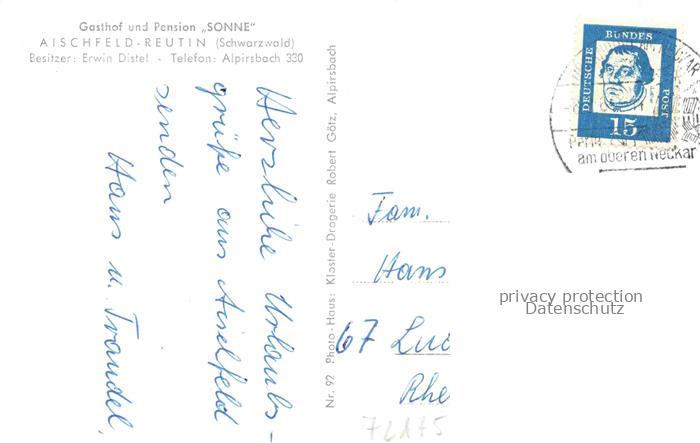 Gasthof und Pension „SONNE"
AISCHFELD-REUTIN (Schwarzwald)
Besitzer: Erwin Distel - Telefon: Alpirsbach 330
Herzliche Urlaubs-
grüße aus Aischfeld
senden
Hans u. Traudel.
Nr. 92 Photo-Haus: Kloster-Drogerie Robert Götz, Alpirsbach
DEUTSCHE BUNDES POST
15
am oberen Neckar
Fam.
Hans
67 Lud
Rhe
privacy protection
Datenschutz
72175